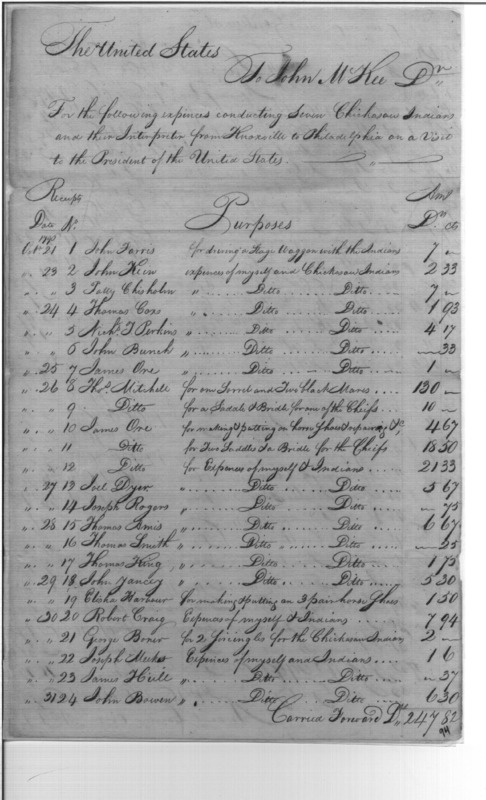 The United States
To John McKee Dr
For the following expences conducting Seven Chickasaw Indians
and their Interpreter from Knoxville to Philadelphia on a Visit
to the President of the United States.
Receipts Amt
Date No Purposes Drs cts
1793
Octr 21 1 John Farris for driving a Stage Waggon with the Indians 7 —
" 23 2 John Keen expences of myself and Chickasaw Indians 2 33
" " 3 Tally Chisholm " Ditto Ditto 7 —
" 24 4 Thomas Cox " Ditto Ditto 1 93
" " 5 Nichs. T Perkins " Ditto Ditto 4 17
" " 6 John Bunch " Ditto Ditto — 33
" 25 7 James Ore " Ditto Ditto 1 —
" 26 8 Thos. Mitchell for one Sorrel and Two black Mares 130 —
" " 9 Ditto for a Sadal & Bridle for one of the Chiefs 10 —
" " 10 James Ore for putting on horse Shoes repairing &c, 4 67
" " 11 Ditto for Two Saddles & a Bridle for the Chiefs 18 50
" " 12 Ditto for Expences of myself & Indians 21 33
" 27 13 Joel Dyer " Ditto Ditto 5 67
" " 14 Joseph Rogers " Ditto Ditto — 75
" 28 15 Thomas Amis " Ditto Ditto 6 67
" " 16 Thomas Smith " Ditto " Ditto — 25
" " 17 Thomas King " Ditto Ditto 1 75
" 29 18 John Yancey " Ditto Ditto 5 30
" " 19 Elisha Harbour for making & putting on 3 pair horse Shoes 1 50
" 30 20 Robert Craig Expences of myself & Indians 7 94
" " 21 George Boner for 2 Sircingles for the Chickasaw Indians 2 —
" " 22 Joseph Meek Expences of myself and Indians 1 6
" " 23 James Hull " Ditto Ditto " 37
" 31 24 John Bowen " Ditto Ditto 6 30
Carried Forward Drs 247 82
94